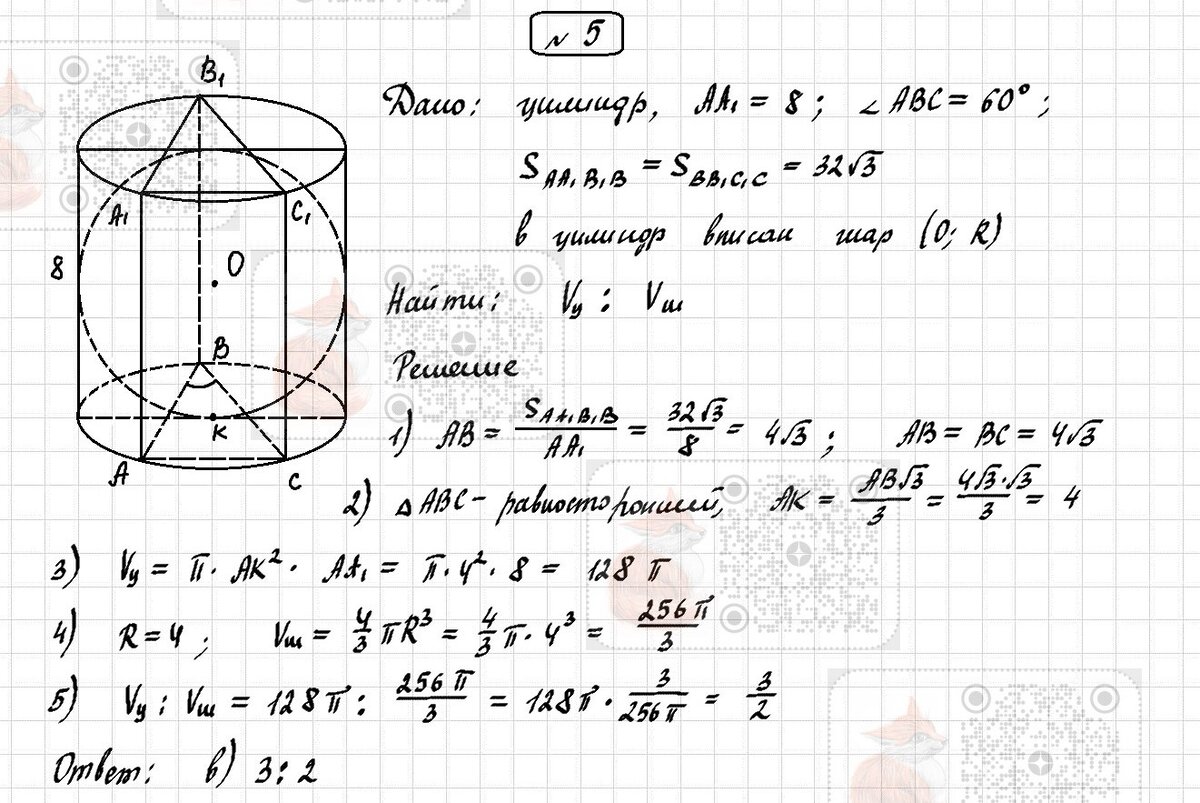 N 5
B₁
A₁
C₁
8
O
B
K
A
C
Дано: цилиндр, AA₁ = 8; ∠ABC = 60°;
S AA₁B₁B = S BB₁C₁C = 32√3
в цилиндр вписан шар (O; R)
Найти: Vц : Vш
Решение
1) AB = S AA₁B₁B / AA₁ = 32√3 / 8 = 4√3; AB = BC = 4√3
2) △ABC - равносторонний, AK = AB√3 / 3 = 4√3·√3 / 3 = 4
3) Vц = π · AK² · AA₁ = π · 4² · 8 = 128 π
4) R = 4; Vш = 4/3 πR³ = 4/3 π · 4³ = 256 π / 3
5) Vц : Vш = 128 π : 256 π / 3 = 128π · 3 / 256π = 3/2
Ответ: в) 3 : 2